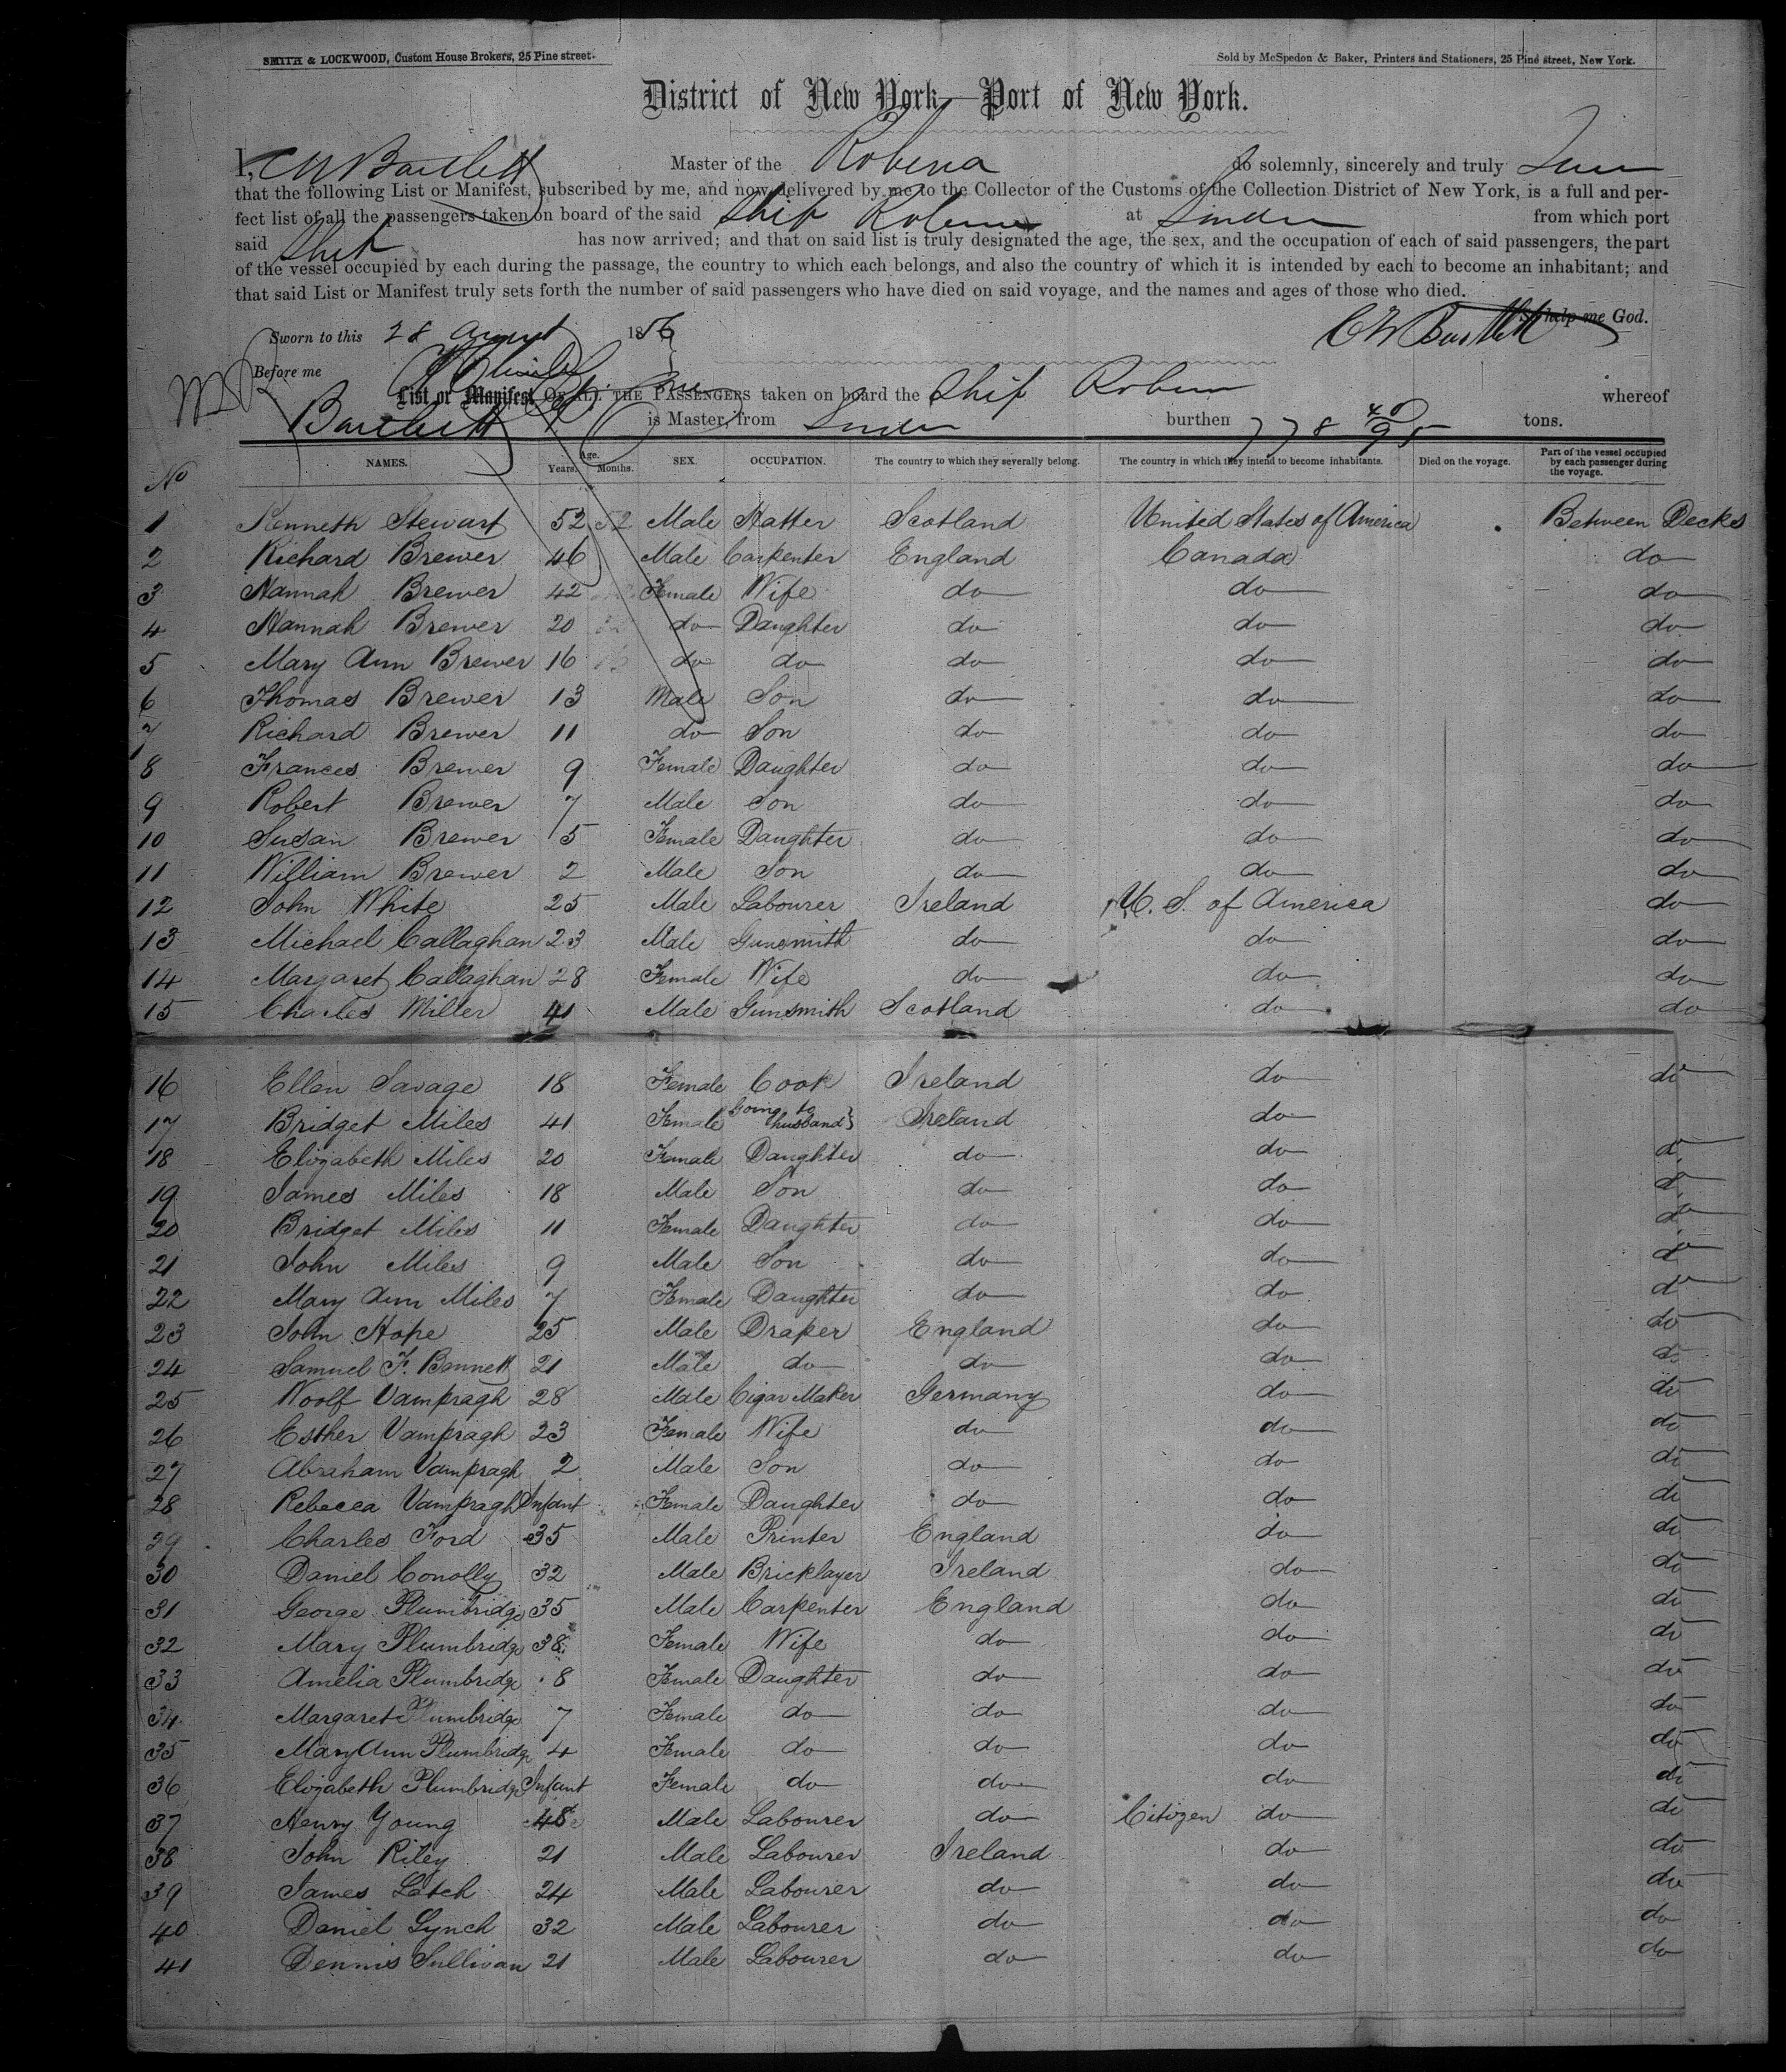 SMITH & LOCKWOOD, Custom House Brokers, 25 Pine street.
Sold by McSpedon & Baker, Printers and Stationers, 25 Pine street, New York.
District of New York—Port of New York.
I, C W Bartlett Master of the do solemnly, sincerely and truly
that the following List or Manifest, subscribed by me, and now delivered by me to the Collector of the Customs of the Collection District of New York, is a full and per-
fect list of all the passengers taken on board of the said Ship at from which port
said Ship has now arrived; and that on said list is truly designated the age, the sex, and the occupation of each of said passengers, the part
of the vessel occupied by each during the passage, the country to which each belongs, and also the country of which it is intended by each to become an inhabitant; and
that said List or Manifest truly sets forth the number of said passengers who have died on said voyage, and the names and ages of those who died.
So help me God.
Sworn to this 28 August 1856 C W Bartlett
Before me
List or Manifest OF ALL THE PASSENGERS taken on board the Ship whereof
Bartlett is Master, from burthen 778 40/95 tons.
No NAMES. Age. Years. Months. SEX. OCCUPATION. The country to which they severally belong. The country in which they intend to become inhabitants. Died on the voyage. Part of the vessel occupied by each passenger during the voyage.
1 Kenneth Stewart 52 52 Male Hatter Scotland United States of America Between Decks
2 Richard Brewer 46 Male Carpenter England Canada do
3 Hannah Brewer 42 Female Wife do do do
4 Hannah Brewer 20 do Daughter do do do
5 Mary Ann Brewer 16 do do do do do
6 Thomas Brewer 13 Male Son do do do
7 Richard Brewer 11 do Son do do do
8 Frances Brewer 9 Female Daughter do do do
9 Robert Brewer 7 Male Son do do do
10 Susan Brewer 5 Female Daughter do do do
11 William Brewer 2 Male Son do do do
12 John White 25 Male Labourer Ireland U. S. of America do
13 Michael Callaghan 23 Male Gunsmith do do do
14 Margaret Callaghan 28 Female Wife do do do
15 Charles Miller 41 Male Gunsmith Scotland do do
16 Ellen Savage 18 Female Cook Ireland do do
17 Bridget Miles 41 Female Going to husband} Ireland do
18 Elizabeth Miles 20 Female Daughter do do do
19 James Miles 18 Male Son do do do
20 Bridget Miles 11 Female Daughter do do do
21 John Miles 9 Male Son do do do
22 Mary Ann Miles 7 Female Daughter do do do
23 John Hope 25 Male Draper England do do
24 Samuel F. Bennett 21 Male do do do do
25 Woolf Vampragh 28 Male Cigar Maker Germany do do
26 Esther Vampragh 23 Female Wife do do do
27 Abraham Vampragh 2 Male Son do do do
28 Rebecca Vampragh Infant Female Daughter do do do
29 Charles Ford 35 Male Printer England do do
30 Daniel Conolly 32 Male Bricklayer Ireland do do
31 George Plumbridge 35 Male Carpenter England do do
32 Mary Plumbridge 38 Female Wife do do do
33 Amelia Plumbridge 8 Female Daughter do do do
34 Margaret Plumbridge 7 Female do do do do
35 Mary Ann Plumbridge 4 Female do do do do
36 Elizabeth Plumbridge Infant Female do do do do
37 Henry Young 48 Male Labourer do Citizen do do
38 John Riley 21 Male Labourer Ireland do do
39 James Latch 24 Male Labourer do do do
40 Daniel Lynch 32 Male Labourer do do do
41 Dennis Sullivan 21 Male Labourer do do do